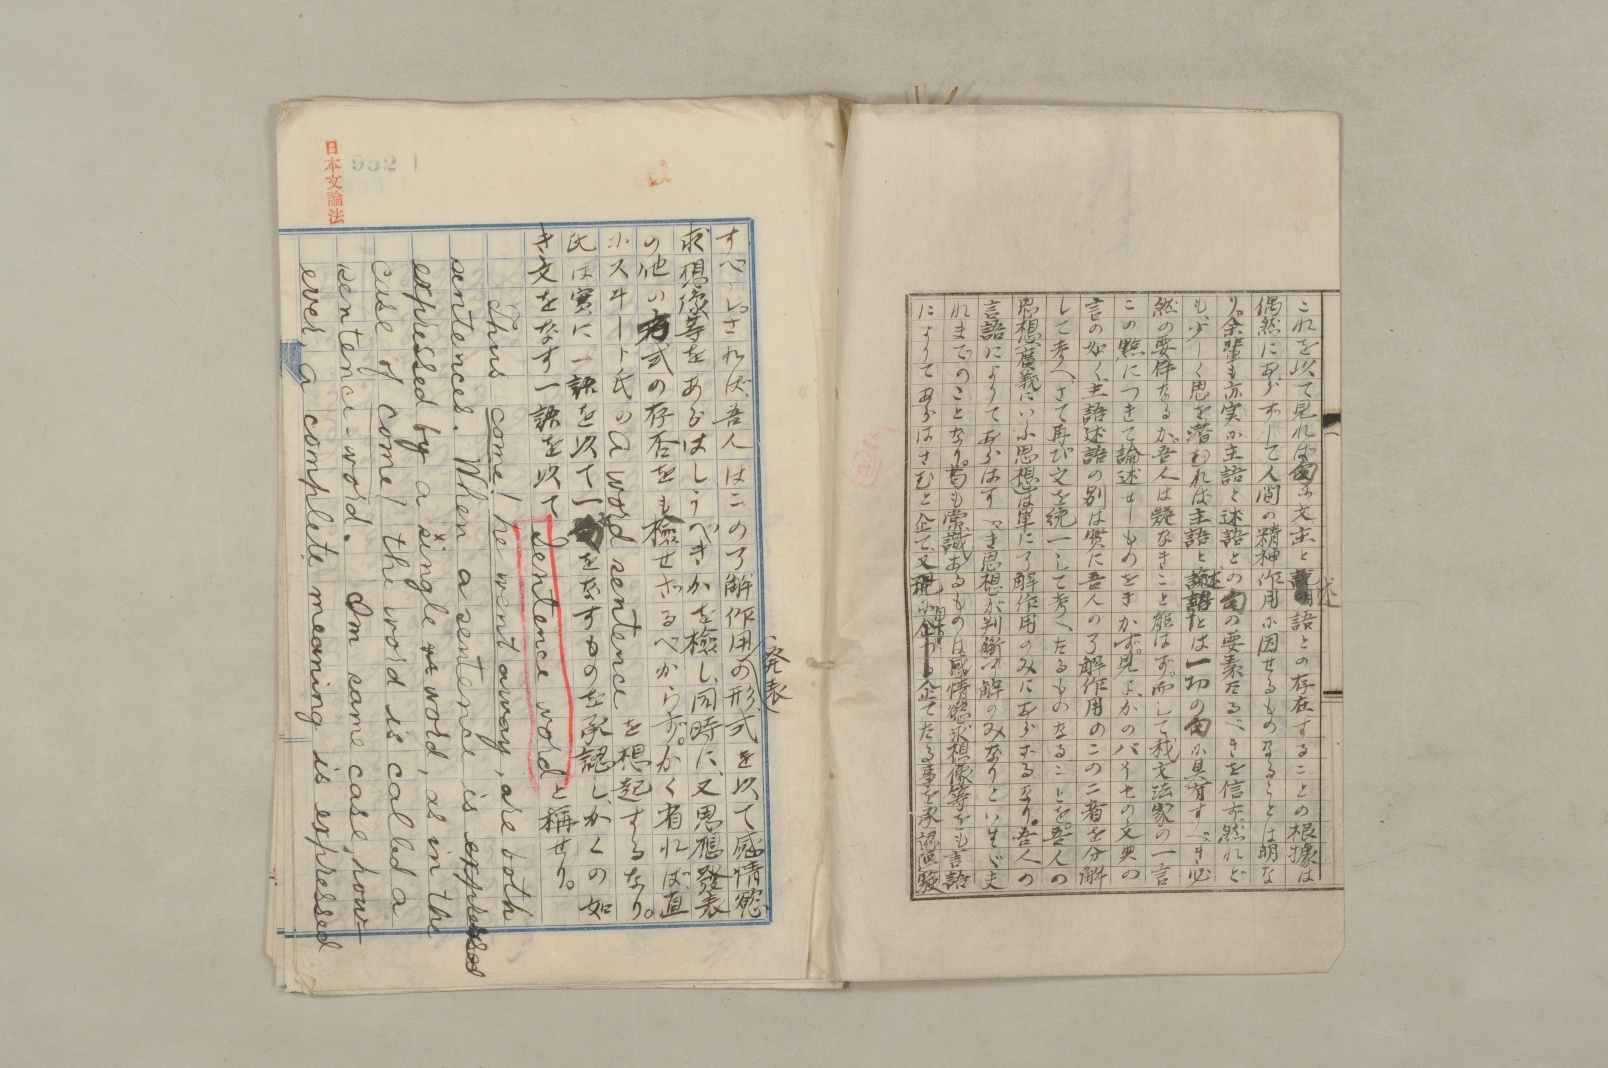 これを以て見れば句に文主と語との存在することの根據は
偶然にあらずして人間の精神作用に因せるものなることは明な
り。余輩も亦実に主語と述語との句の要素たるべきを信ず、然れど
も、少しく思を潜むれば主語と述語とは一切の句に具有すべき必
然の要件なるか。吾人は疑なきこと能はず。而して我文法家の一言
この點につきて論述せしものをきかず。見よ、かのハイゼの文典の
言の如く、主語述語の別は實に吾人の了解作用のこの二者を分解
して考へ、さて再び文を統一して考へたるものなることを。吾人の
思想(廣義にいふ思想)は單に了解作用のみにあらざるなり。吾人の
言語によりてあらはすべき思想が判斷了解のみなりといはゞ夫
れまでのことなり。苟も常識あるものは感情慾求想像等をも言語
によりてあらはさむと企て、又現に企てつゝ企てたる事を承認
述
すべし。されば吾人はこの了解作用の形式を以て感情慾
求想像等をあらはしうべきかを檢し、同時に、又思想發表
発表
の他の方式の存否をも檢せざるべからず。かく省れば直
にスヰート氏の a word sentence を想起するなり。
氏は實に一語を以て一句をなすものを承認し、かくの如
き文をなす一語を以て Sentence word と稱せり。
Thus come! he went away, are both
sentences. When a sentence is expressed
expressed by a single word, as in the
case of come! the word is called a
sentence-word. In same case, how-
ever, a complete meaning is expressed
日本文論法
952